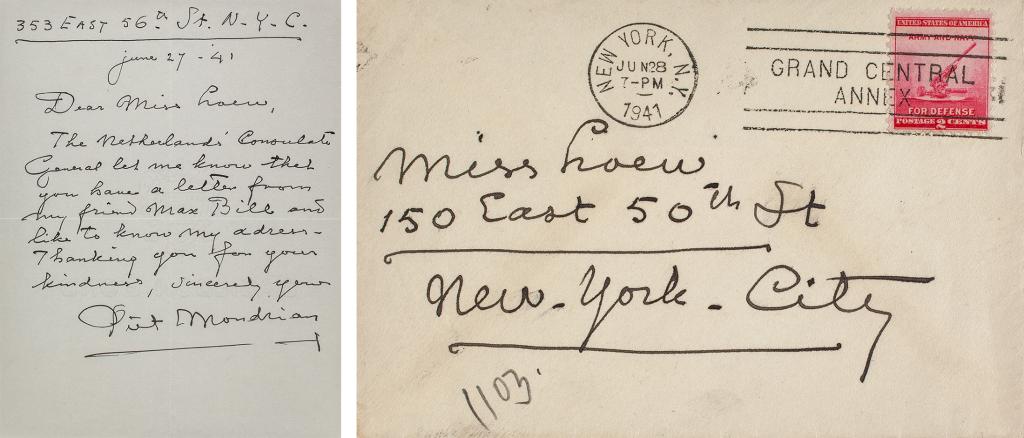 353 EAST 56th St. N-Y-C.
june 27 - '41
Dear Miss Loew,
The Netherlands' Consulate
General let me know that
you have a letter from
my friend Max Bill and
like to know my adress-
Thanking you for your
kindness, sincerely yours
Piet Mondrian
NEW YORK, N.Y.
JUN 28
7-PM
1941
GRAND CENTRAL
ANNEX
UNITED STATES OF AMERICA
ARMY AND NAVY
FOR DEFENSE
POSTAGE 2 CENTS
Miss Loew
150 East 50th St
New-York-City
1103.